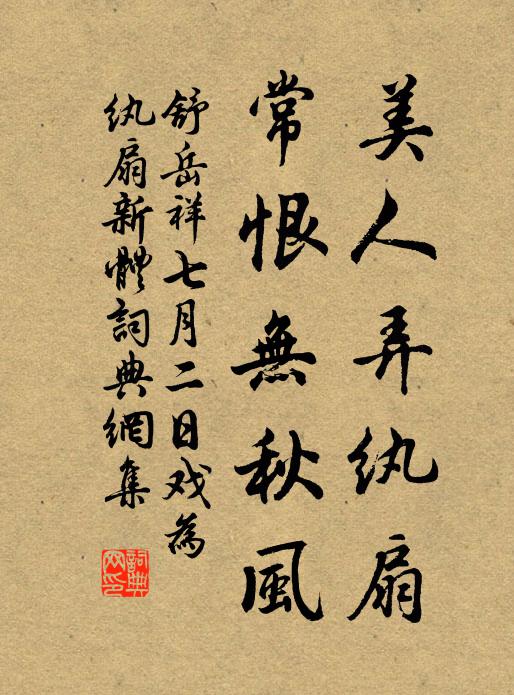 美人弄紈扇
常恨無秋風
舒岳祥七月二日戏為
紈扇新體詞典網集
詞典
网印